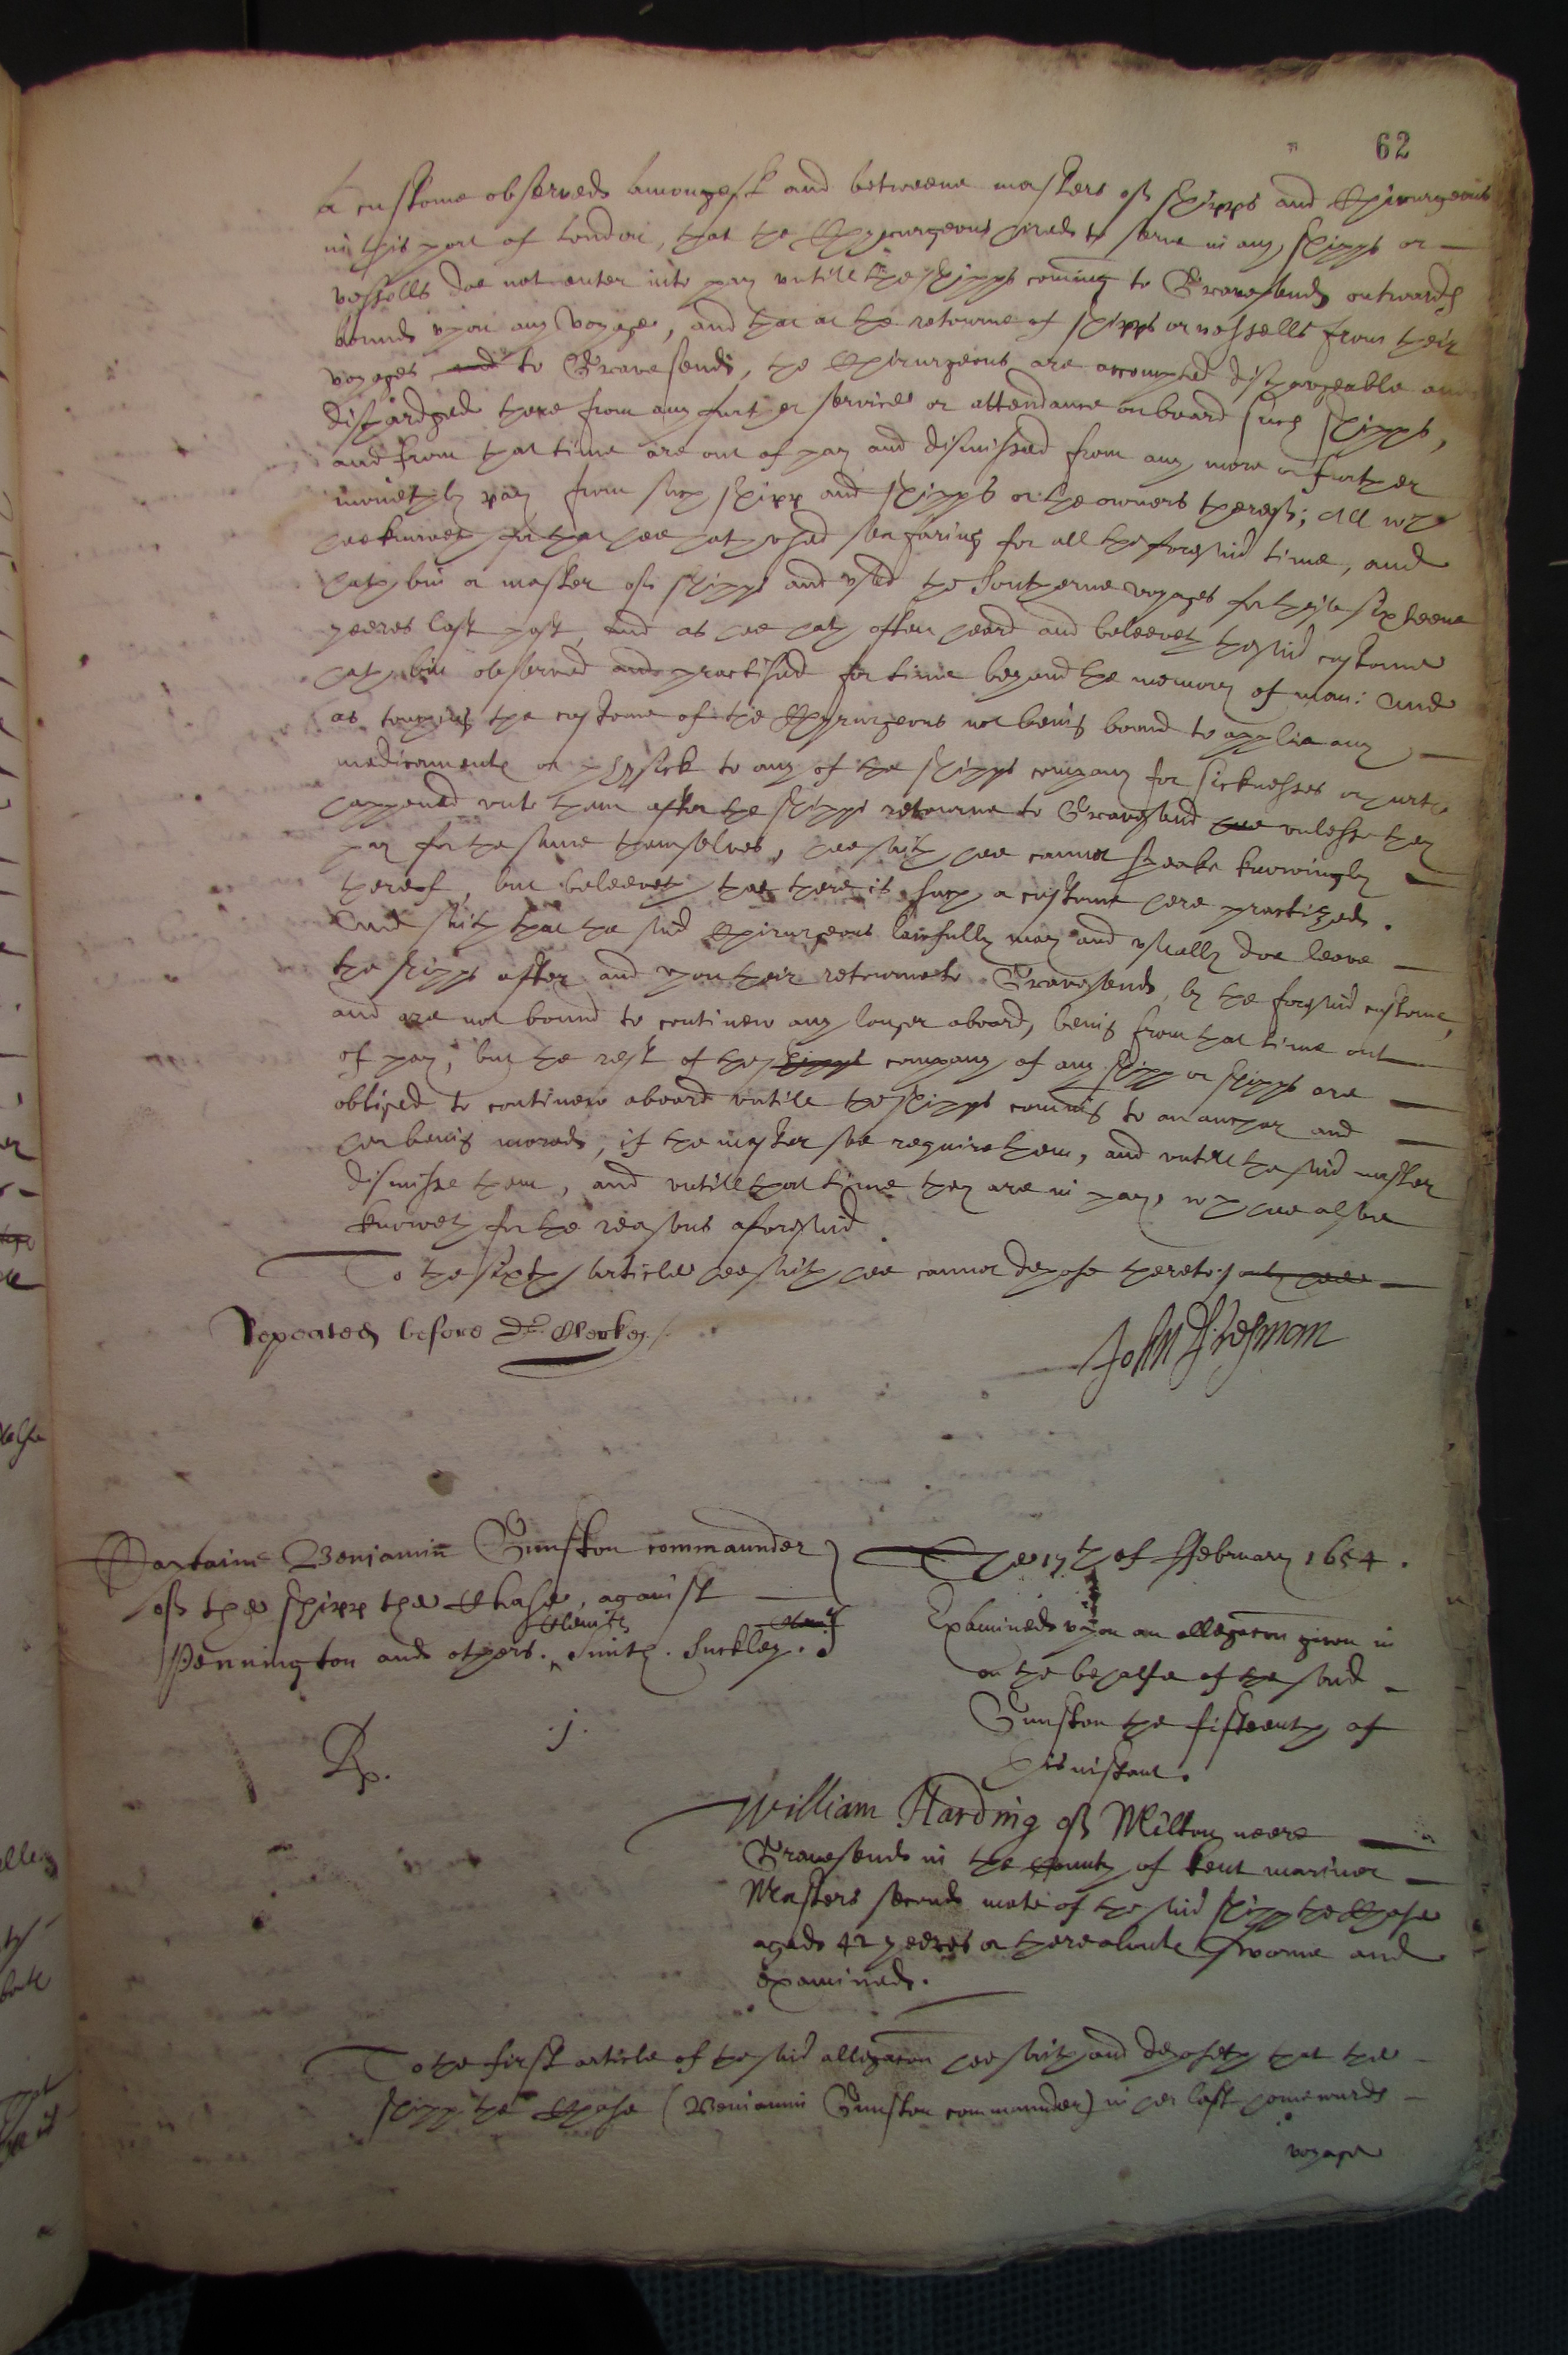 62
a custome observed amongest and betweene masters of shipps and Chirurgeons
in this port of London, that the Chyrurgeons hired to serve in any shipps or
vessells doe not enter into pay untill the shipps coming to Gravesend outwards
bound upon any voyage, and that at the retourne of shipps or vessells from their
voyages and to Gravesend, the Chirurgeons are accompted dischargeable and
dischardged there from any further service or attendance on board such shipps,
and from that time are out of pay and dismissed from any more or further
monethly pay from such shipp and shipps or the owners thereof; All wch
hee knoweth for that hee hath used sea faring for all the foresaid time, and
hath bin a master of shipps and used the Southerne voyages for theise sixteene
yeeres last past, and as hee hath often heard and beleeveth the said custome
hath bin observed and practised for time beyond the memory of man: And
as touching the custome of the Chyrurgeons not being bound to applie any
medicaments or physick to any of the shipps company for sicknesses or hurts
happened unto them after the shipps retourne to Gravesend hee unlesse they
pay for the same themselves, hee saith hee cannot speake knowingly
thereof, but beleeveth that there is such a custome here practized.
And saith that the said Chirurgeons lawfully may and usually doe leave
the shipps after and upon their retourne to Gravesend, by the foresaid custome,
and are not bound to continew any longer aboard, being from that time out
of pay, but the rest of the shipps company of any shipp or shipps are
obliged to continew aboard untill the shipps coming to an anchor and
her being mored, if the master soe require them, and untill the said master
dismisse them, and untill that time they are in pay, wch hee alsoe
knoweth for the reasons aforesaid.
To the sixth article hee saith hee cannot depose thereto
Repeated before Dr. Clerke.
John Fresman
Captaine Benjamin Gunston commaunder
of the shipp the Chase, against
Pennington and others. Clemts Smith. Suckley.
The 17th of ffebruary 1654.
Examined upon an allegacon given in
on the behalfe of the said
Gunston the fifteenth of
this instant.
Rp. .j.
William Harding of Milton neere
Gravesend in the County of Kent mariner
Masters second mate of the said shipp the Chase
aged 42 yeeres or thereabouts sworne and
examined.
To the first article of the said allegacon hee saith and deposeth that the
shipp the Chase (Benjamin Gunston commaunder) in her last homewards
voyage